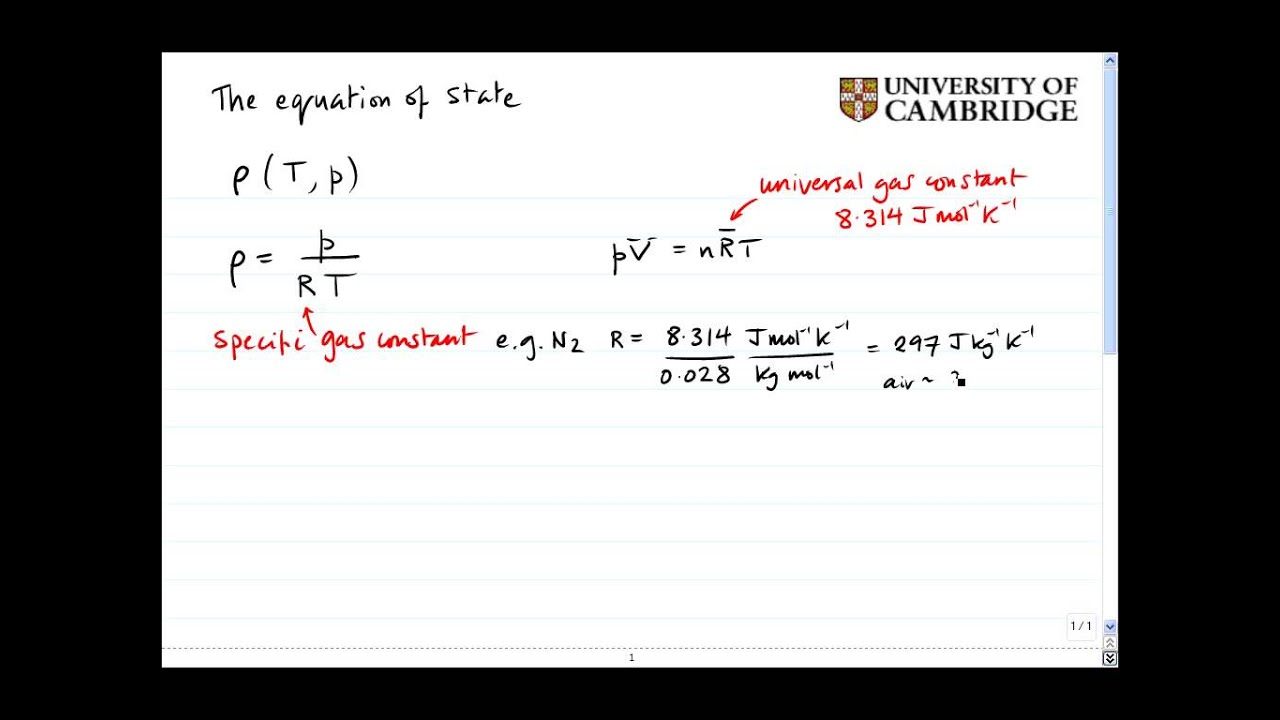 The equation of state
UNIVERSITY OF
CAMBRIDGE
ρ (T, p)
universal gas constant
8.314 J mol⁻¹ K⁻¹
ρ = p / RT
pV̄ = nR̄T
specific gas constant e.g. N₂ R = 8.314 / 0.028 J mol⁻¹ K⁻¹ / kg mol⁻¹ = 297 J kg⁻¹ K⁻¹
air ~ ?
1 / 1
1